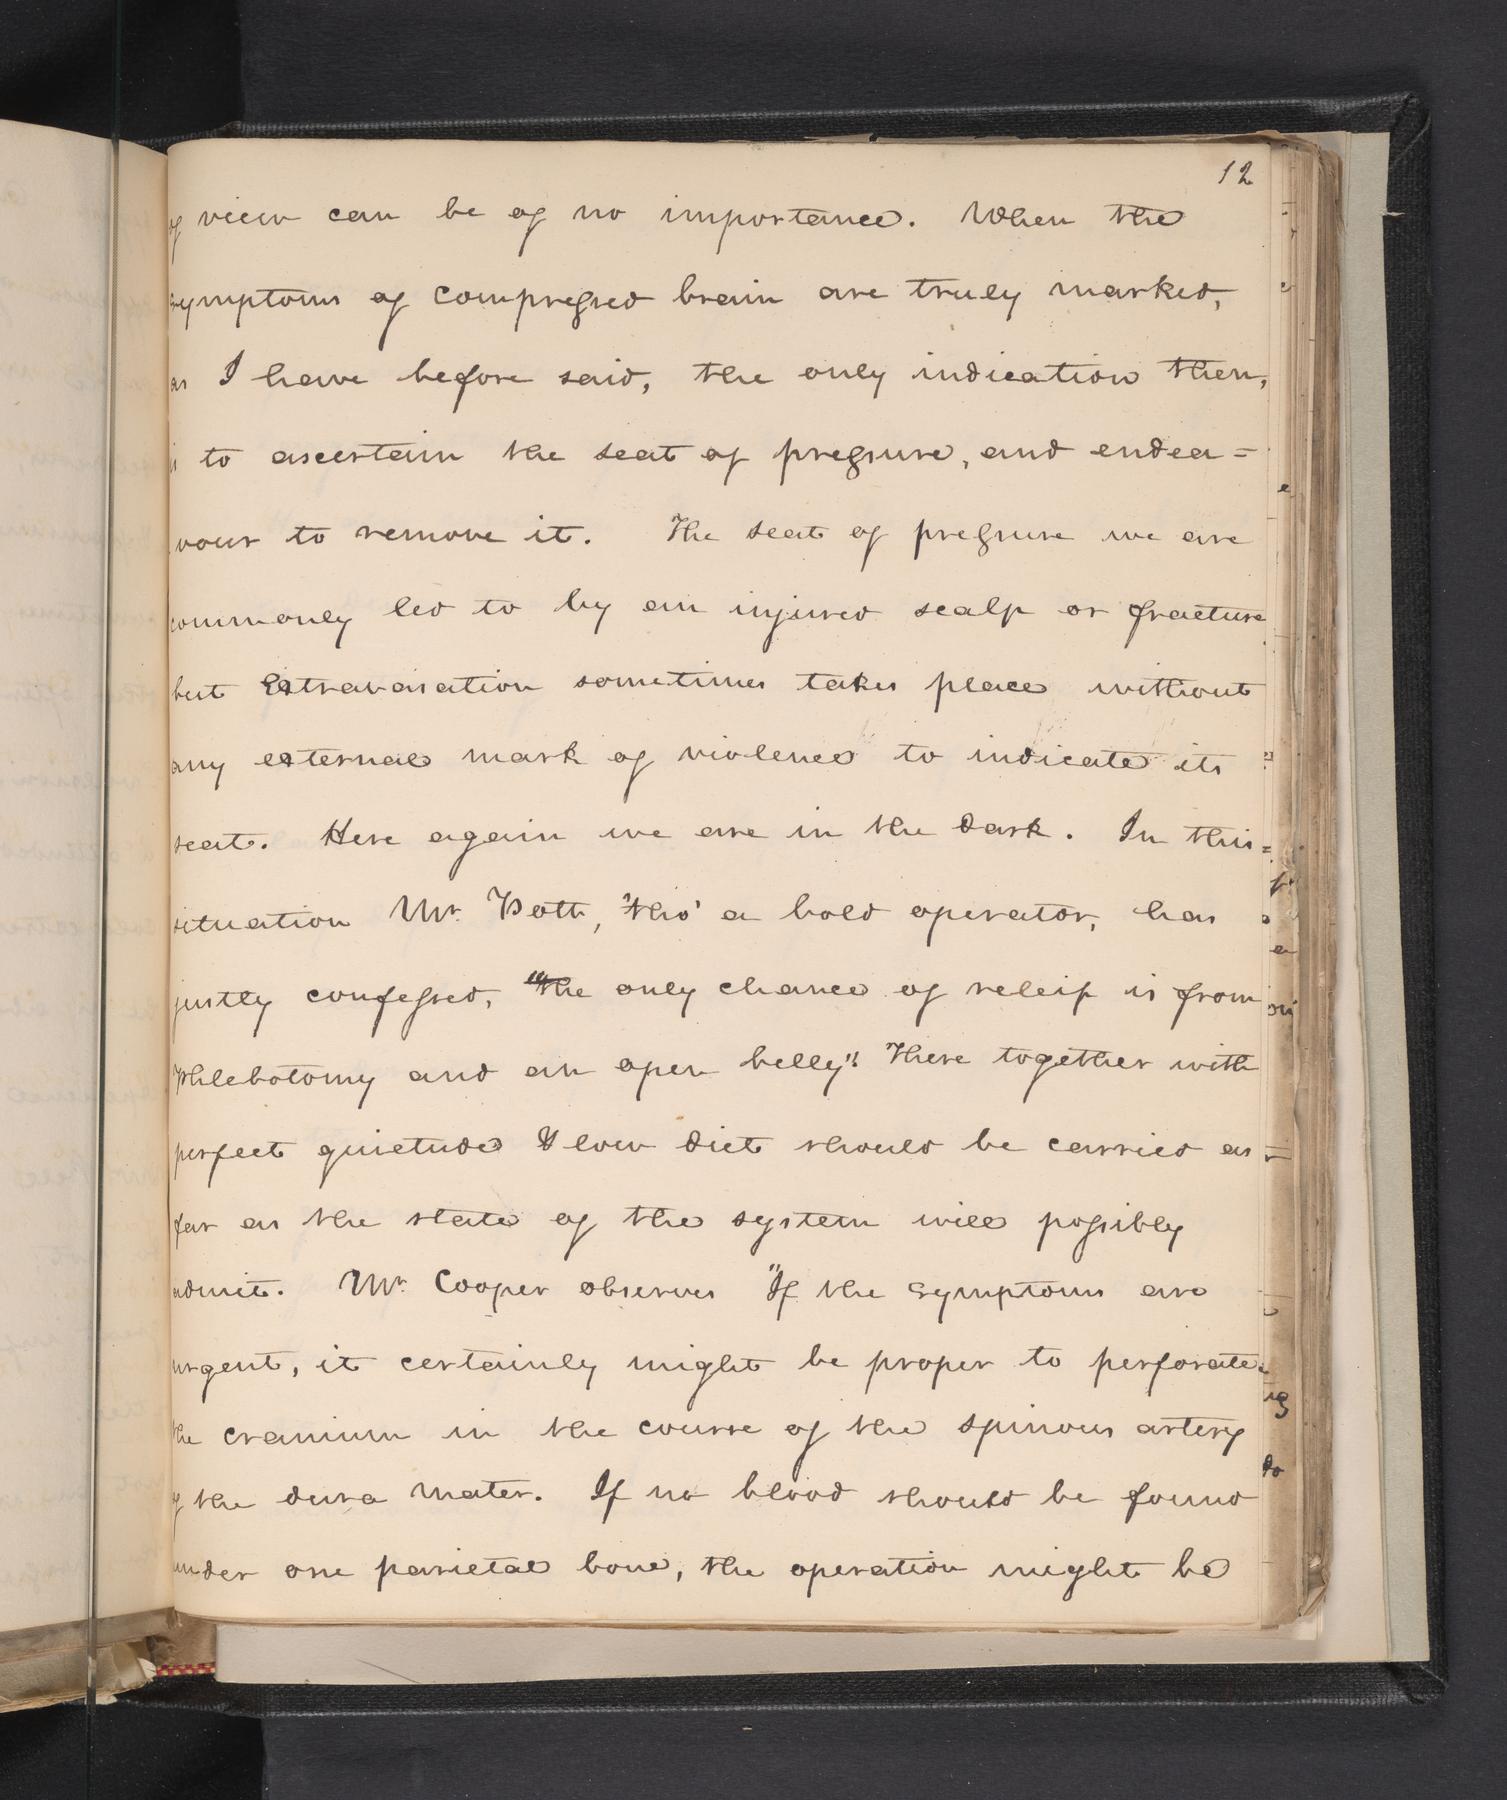 12
of view can be of no importance. When the
symptoms of compressed brain are truly marked,
as I have before said, the only indication then,
is to ascertain the seat of pressure, and endea=
vour to remove it. The seat of pressure we are
commonly led to by an injured scalp or fracture
but Extravasation sometimes takes place without
any external mark of violence to indicate its
seat. Here again we are in the dark. In this
situation Mr. Pott, tho' a bold operator, has
justly confessed, "the only chance of releif is from
Phlebotomy and an open belly". These together with
perfect quietude & low diet should be carried as
far as the state of the system will possibly
admit. Mr. Cooper observes "If the symptoms are
urgent, it certainly might be proper to perforate
the cranium in the course of the spinous artery
of the dura mater. If no blood should be found
under one parietal bone, the operation might be